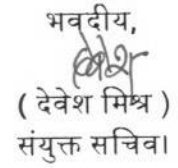 भवदीय,
देवेश
( देवेश मिश्र )
संयुक्त सचिव।